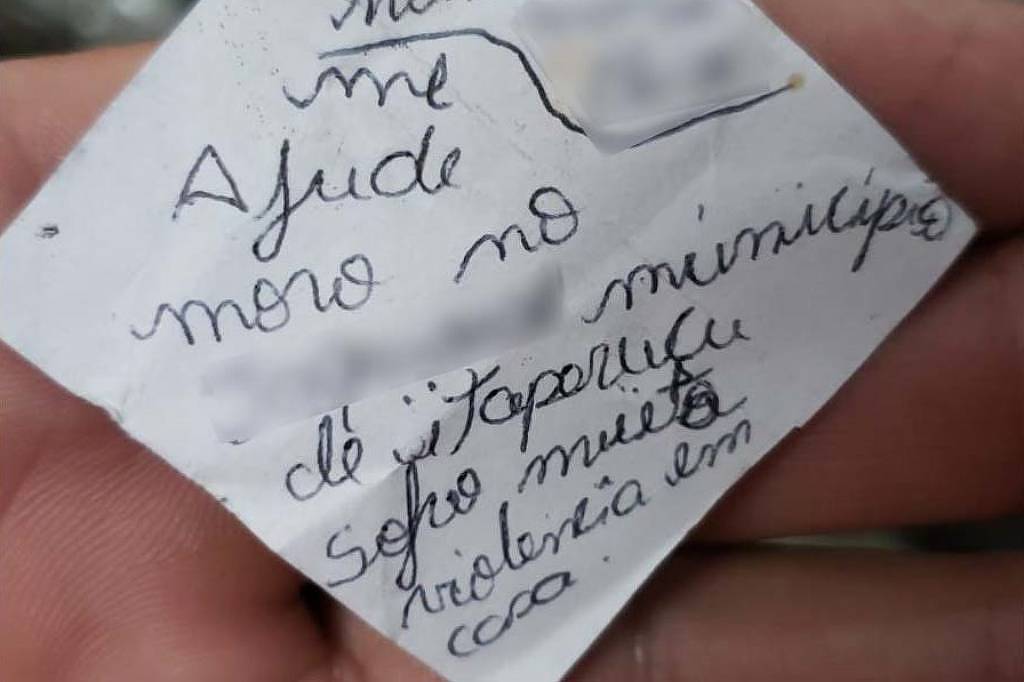 me
Ajude
moro no
município
de itaporucu
Sofro muito
violencia em
casa.